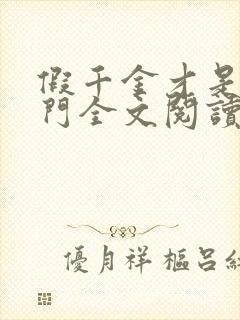 假千金才是
門全文閱讀
優月祥 樞呂